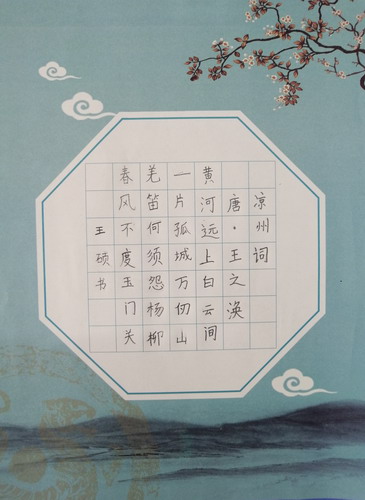 凉州词
唐·王之涣
黄河远上白云间
一片孤城万仞山
羌笛何须怨杨柳
春风不度玉门关
王硕书